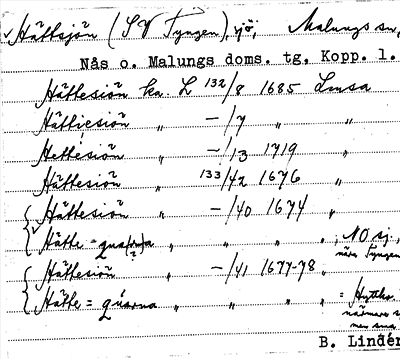 Hättsjön (SV Tyngen), sjö, Malungs sn,
Nås o. Malungs doms. tg, Kopp. l.
Hättesiön ka. L 132/8 1685 Lmsa
Hättiesiön " —/7 " "
Hettesiön " —/13 1719 "
Hättesiön " 133/42 1676 "
Hättesiön " —/40 1674 "
Hätte = " " " " , NO sj.,
nära Tyngen
Hättesiön " —/41 1677-78 "
Hätte = quarna " " " " = Hytte
närmare
B. Lindén